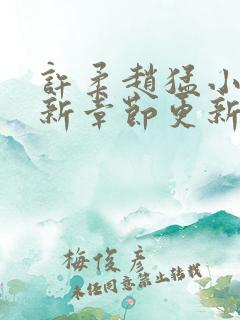 許柔趙猛小
新章節更新
梅俊彦
未经同意禁止转载